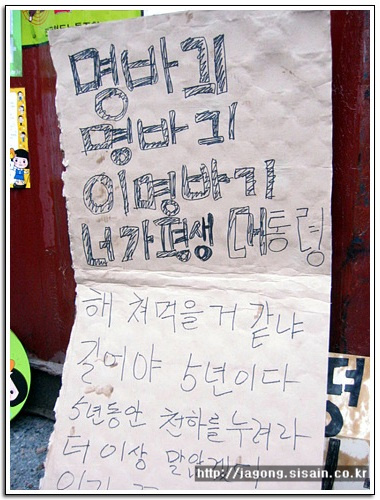 명바긔
명바기
이명바기
너가평생 대통령
해 쳐먹을거 같냐
길어야 5년이다
5년동안 천하를누려라
더 이상
http://jagong.sisain.co.kr